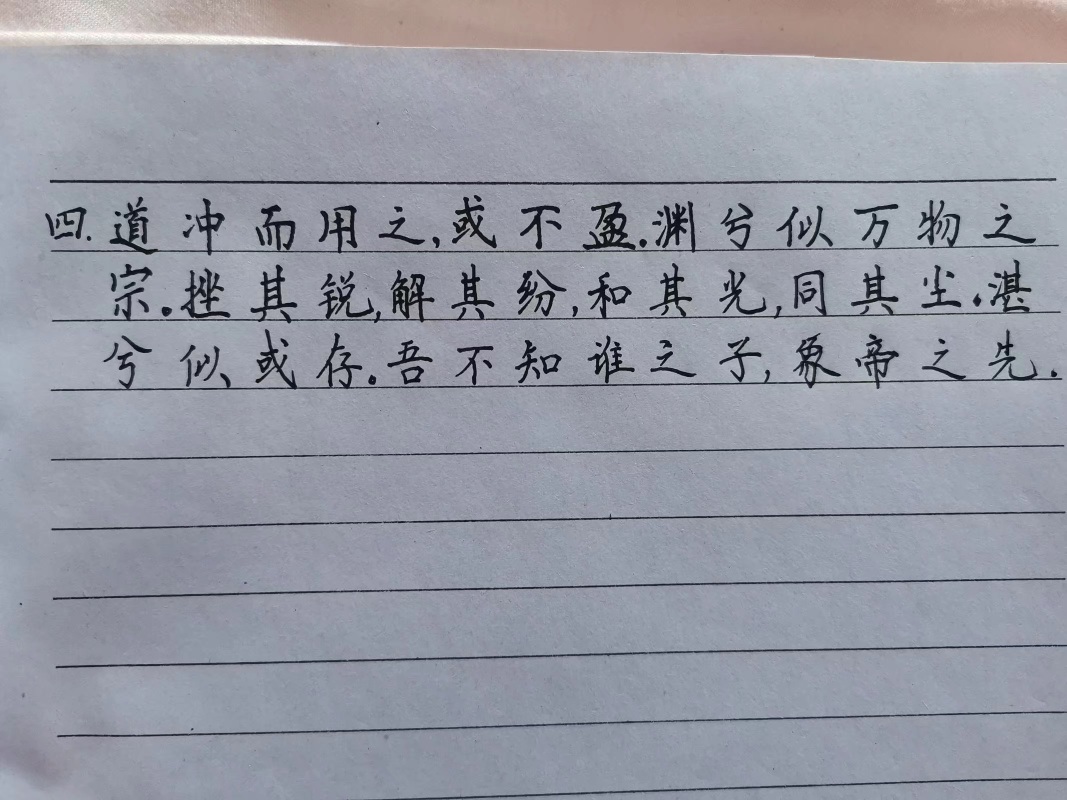 四.道冲而用之,或不盈.渊兮似万物之
宗.挫其锐,解其纷,和其光,同其尘.湛
兮似或存。吾不知谁之子,象帝之先.